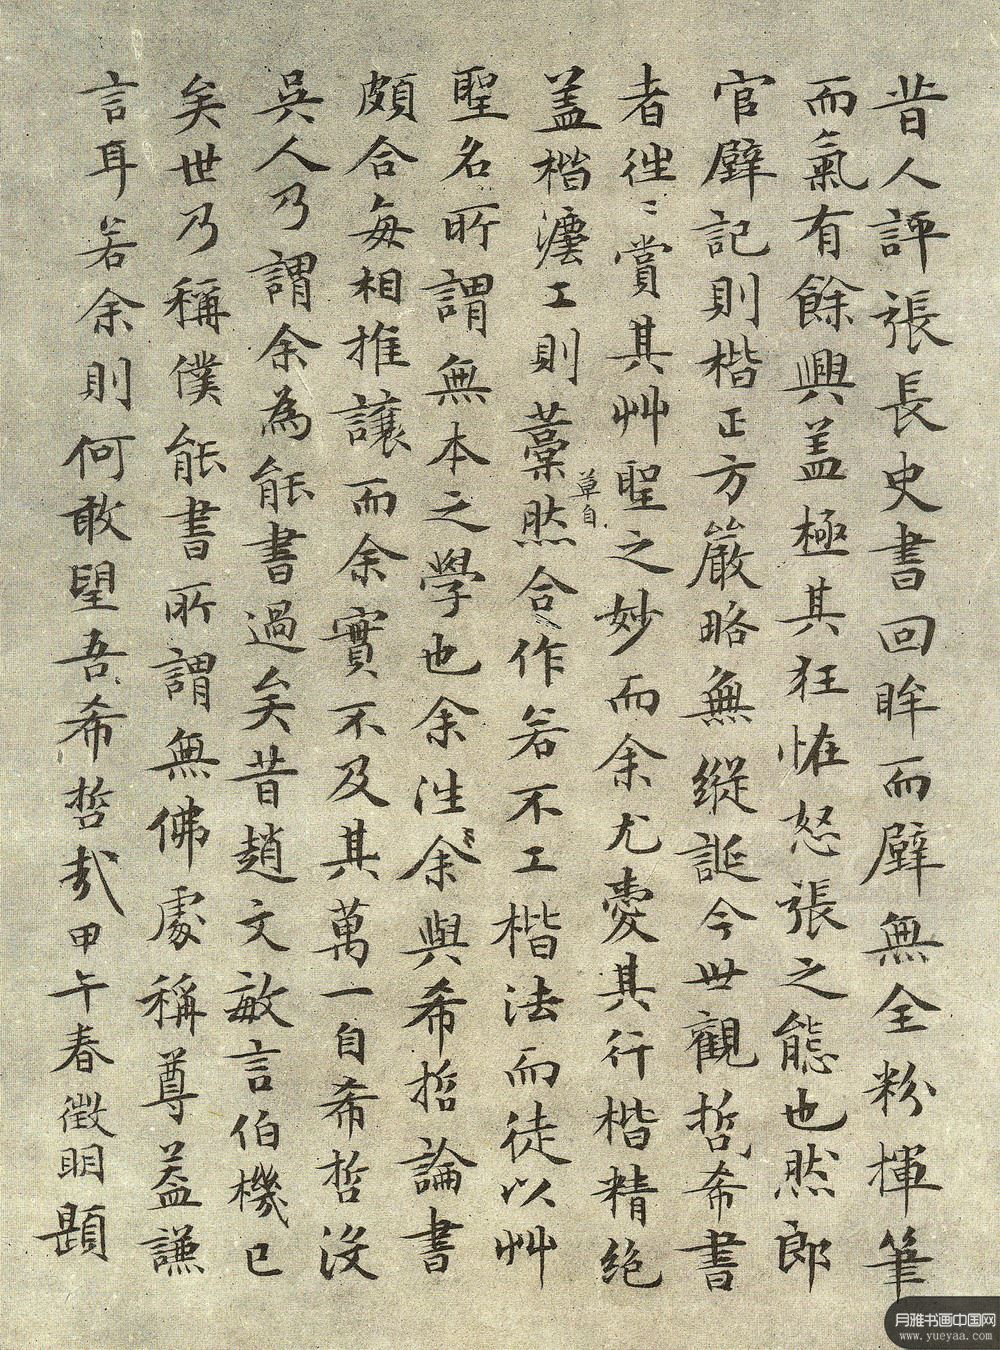 昔人評張長史書回眸而壁無全粉揮筆
而氣有餘興盖極其狂恠怒張之態也然郎
官壁記則楷正方嚴略無縱誕今世觀哲希書
者往〻賞其艸聖之妙而余尤愛其行楷精絕
盖楷灋工則藁草自然合作若不工楷法而徒以艸
聖名所謂無本之學也余往余與希哲論書
頗合每相推讓而余實不及其萬一自希哲沒
吳人乃謂余為能書過矣昔趙文敏言伯機已
矣世乃稱僕能書所謂無佛處稱尊益謙
言耳若余則何敢望吾希哲哉甲午春徵明題
月雅书画中国网
www.yueyaa.com